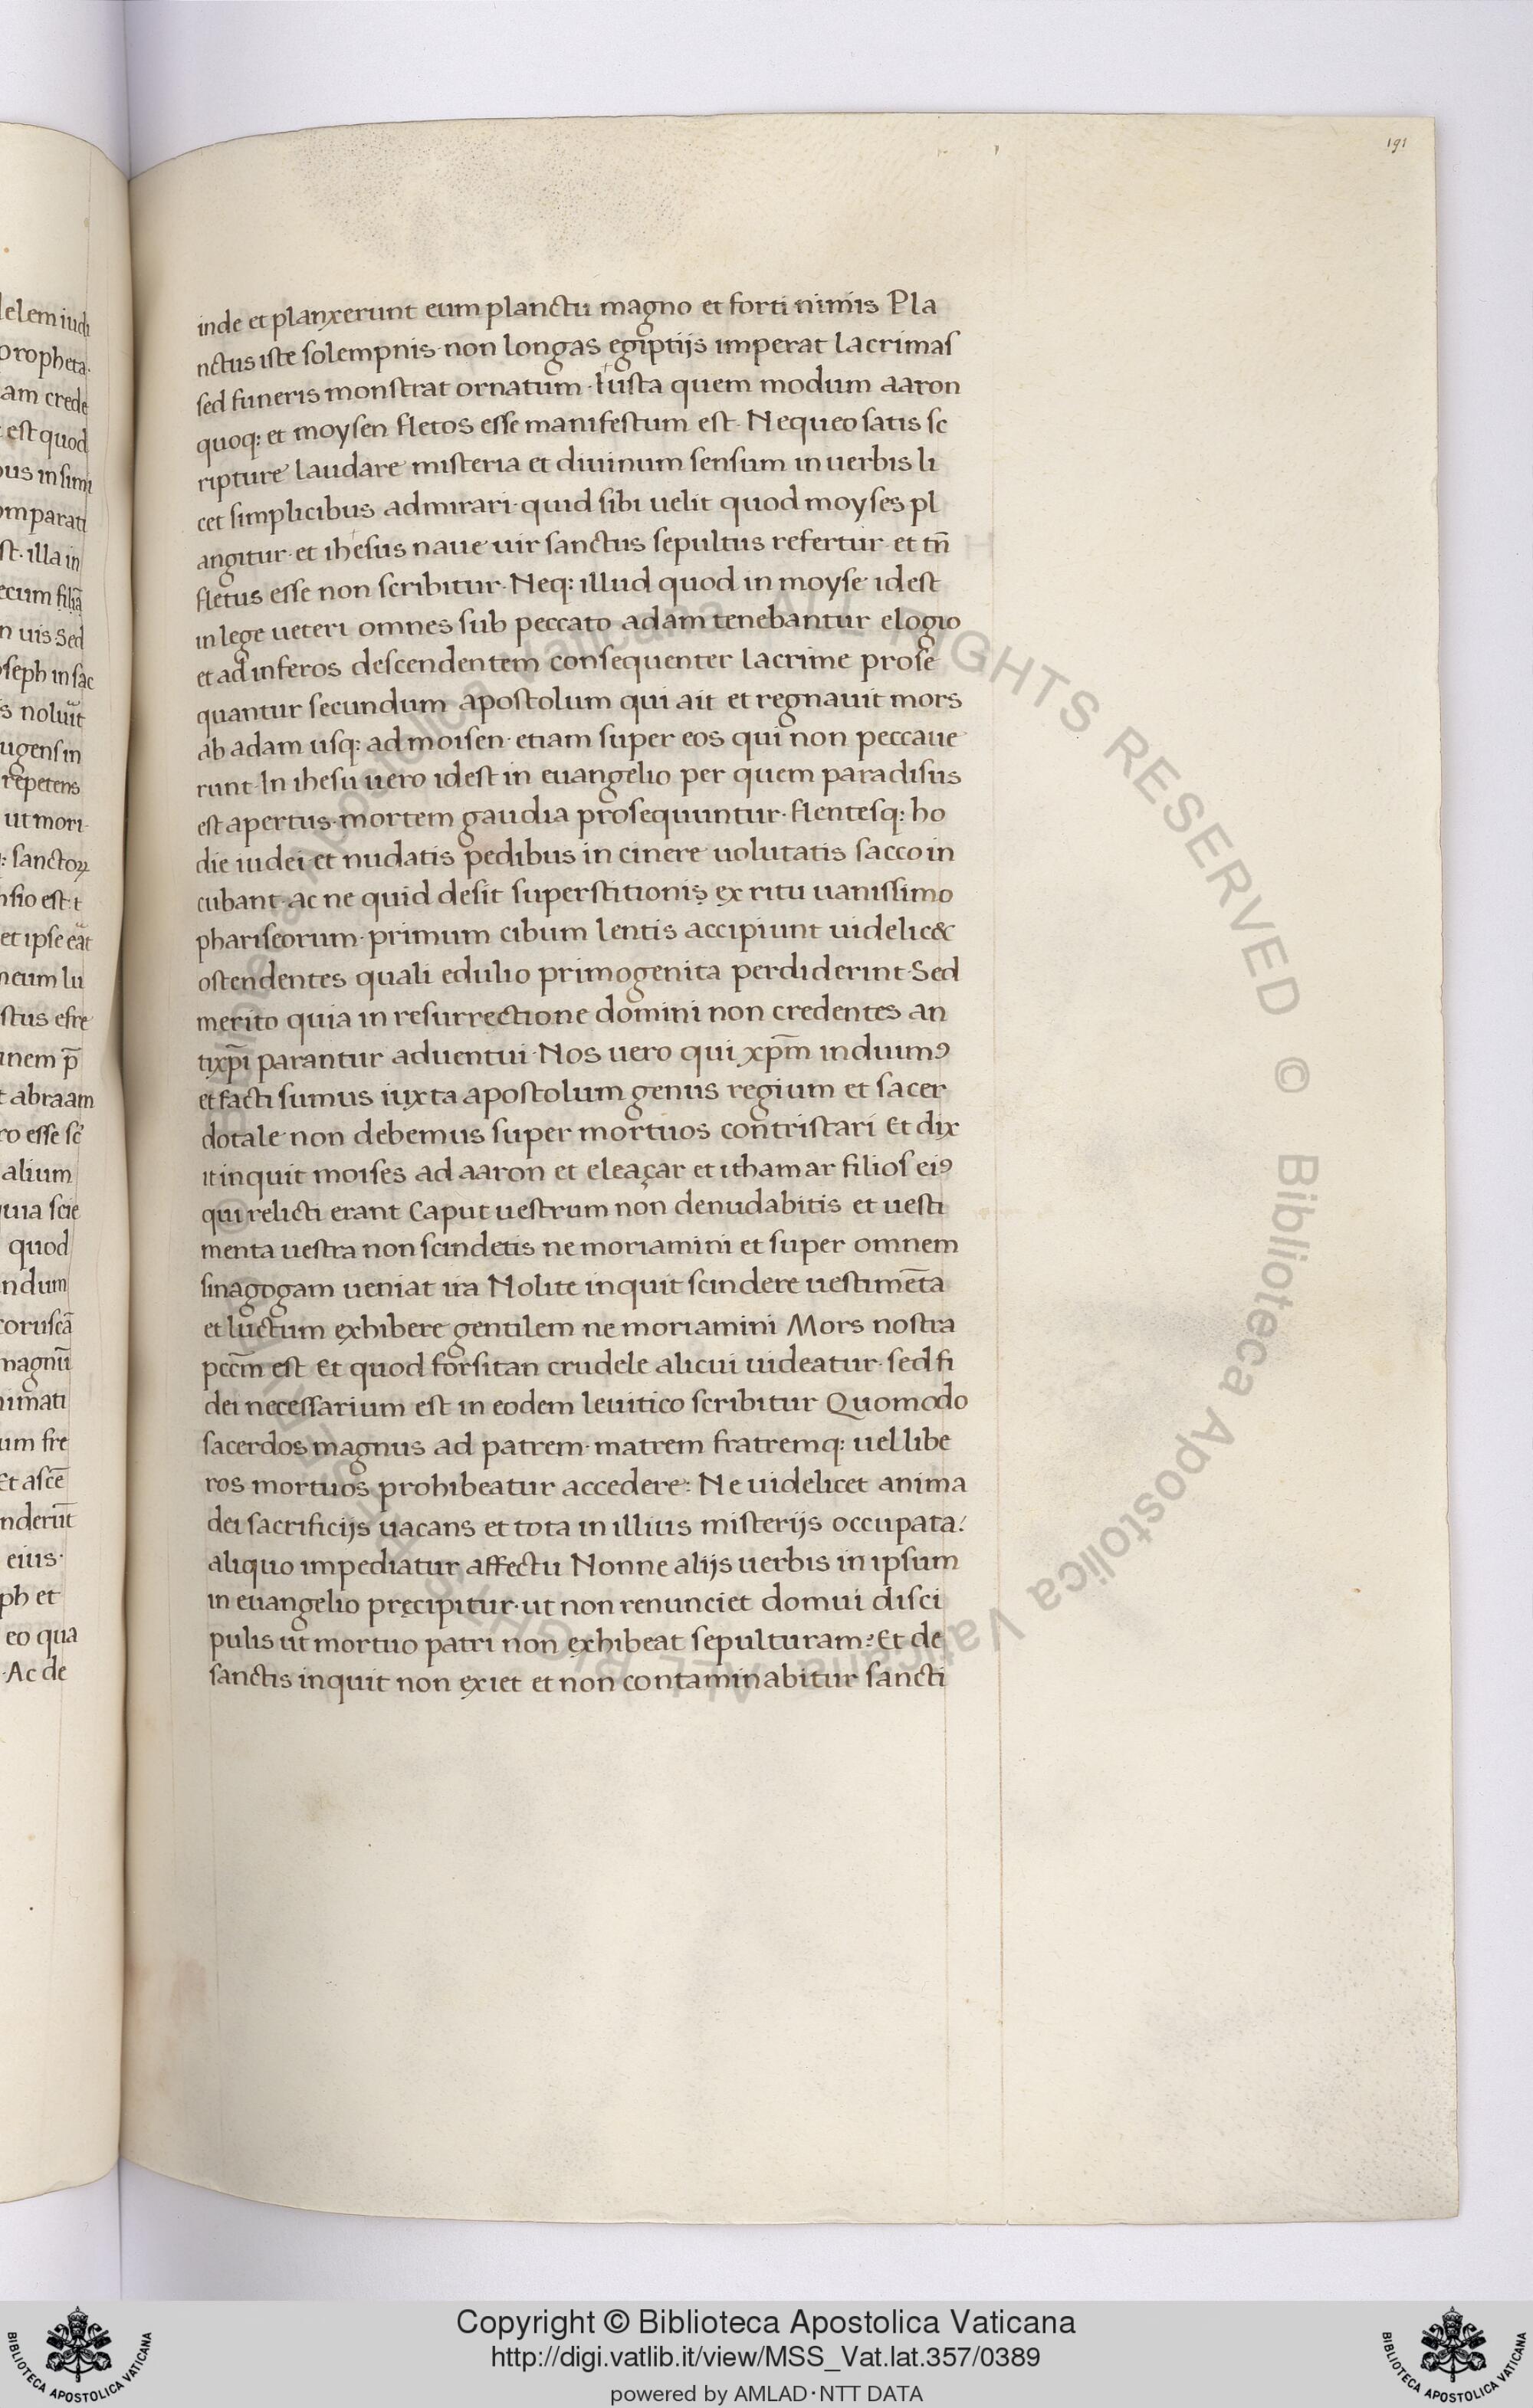 191
inde et planxerunt eum planctu magno et forti nimis Pla
nctus iste solempnis· non longas egiptijs imperat lacrimas
sed funeris monstrat ornatum· Iusta quem modum aaron
quoq: et moysen fletos esse manifestum est· Nequeo satis sc
ripture laudare misteria et diuinum sensum in uerbis li
cet simplicibus admirari· quid sibi uelit quod moyses pl
angitur· et ihesus naue uir sanctus sepultus refertur· et tn̄
fletus esse non scribitur· Neq: illud quod in moyse idest
in lege ueteri omnes sub peccato adam tenebantur elogio
et ad inferos descendentem consequenter lacrime prose
quantur secundum apostolum qui ait et regnauit mors
ab adam usq: ad moisen· etiam super eos qui non peccaue
runt· In ihesu uero idest in euangelio per quem paradisus
est apertus· mortem gaudia prosequuntur· flentesq: ho
die iudei et nudatis pedibus in cinere uolutatis sacco in
cubant· ac ne quid desit superstitionis ex ritu uanissimo
phariseorum· primum cibum lentis accipiunt uidelic&
ostendentes quali edulio primogenita perdiderint· Sed
merito quia in resurrectione domini non credentes an
tixp̄i parantur aduentui· Nos uero qui xp̄m induimꝰ
et facti sumus iuxta apostolum genus regium et sacer
dotale non debemus super mortuos contristari Et dix
it inquit moises ad aaron et eleaçar et ithamar filios eiꝰ
qui relicti erant Caput uestrum non denudabitis et uesti
menta uestra non scindetis ne moriamini et super omnem
sinagogam ueniat ira Nolite inquit scindere uestimēta
et luctum exhibere gentilem ne moriamini Mors nostra
pccm̄ est Et quod forsitan crudele alicui uideatur· sed fi
dei necessarium est in eodem leuitico scribitur Quomodo
sacerdos magnus ad patrem· matrem fratremq: uel libe
ros mortuos prohibeatur accedere: Ne uidelicet anima
dei sacrificijs uacans et tota in illius misterijs occupata:
aliquo impediatur affectu Nonne alijs uerbis in ipsum
in euangelio pręcipitur· ut non renunciet domui disci
pulis ut mortuo patri non exhibeat sepulturam? Et de
sanctis inquit non exiet et non contaminabitur sancti
Copyright © Biblioteca Apostolica Vaticana
http://digi.vatlib.it/view/MSS_Vat.lat.357/0389
powered by AMLAD·NTT DATA